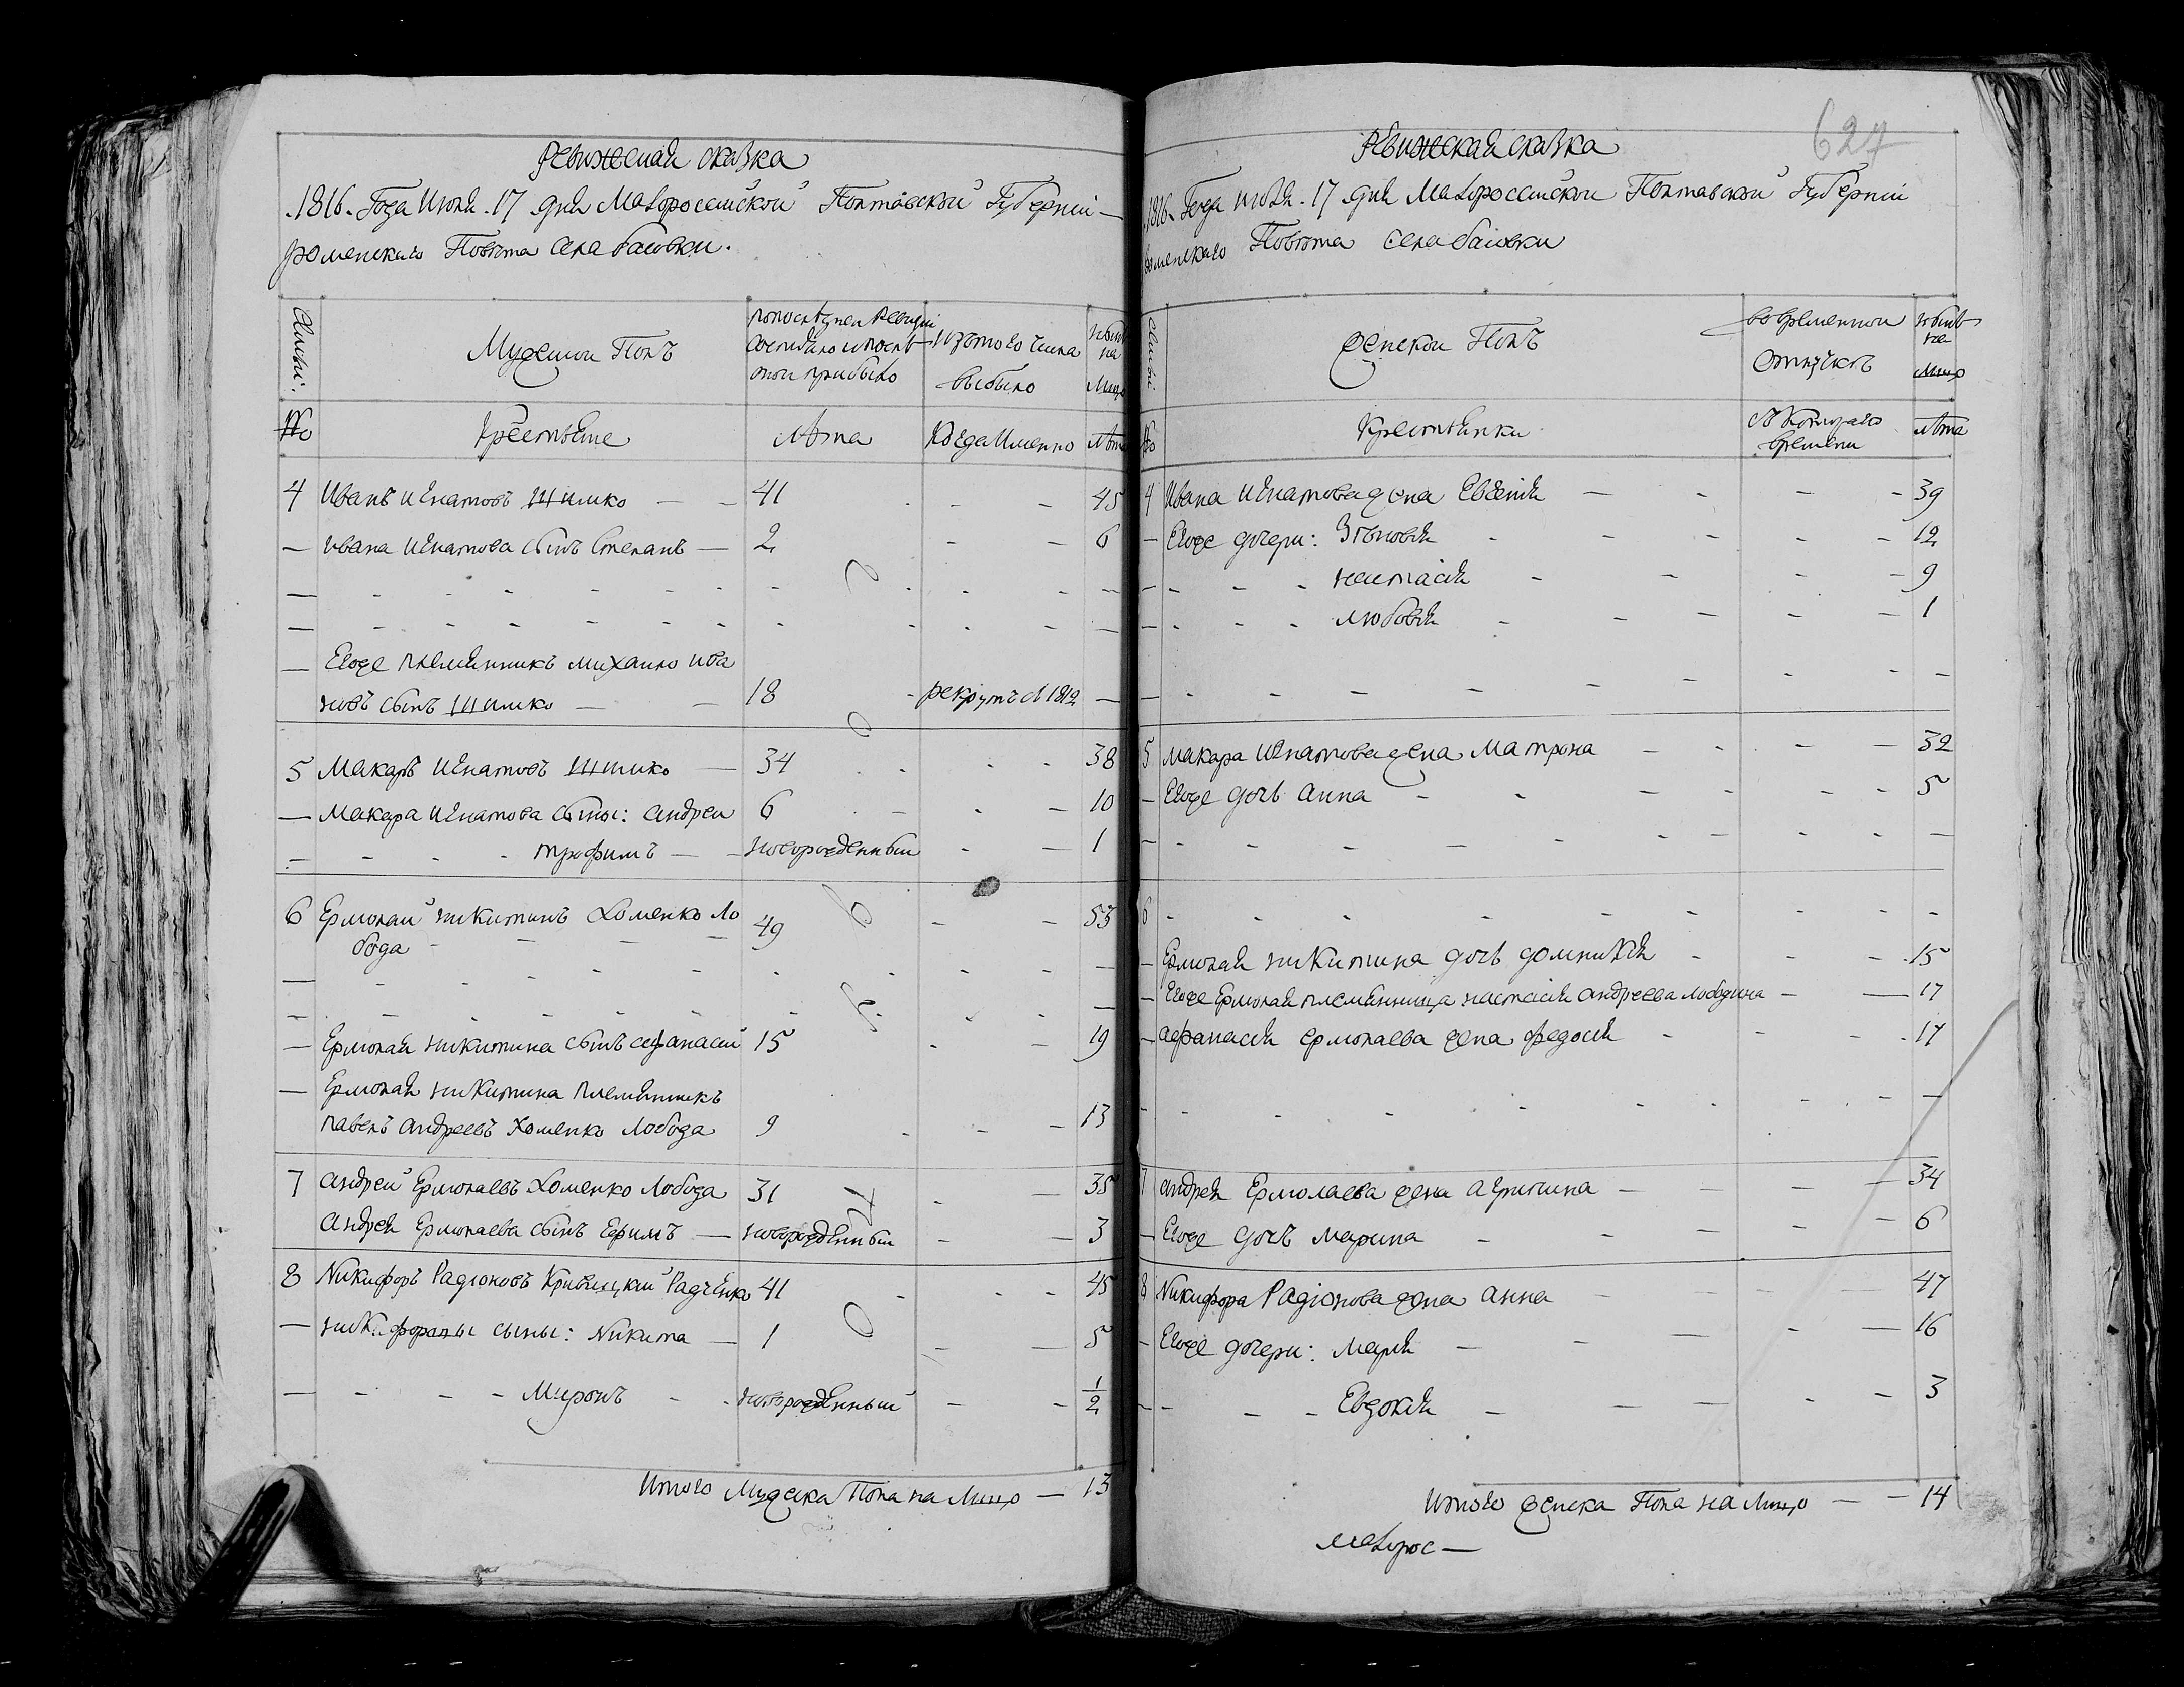 Ревижская сказка
1816. Года Июля. 17 дня Малоросейской Полтавской Губерніи
роменскаго Повѣта села баговки.
Мужеской Полъ
по последней Ревизіи состояло и после оной прибыло
Изътого числа выбыло
ныне на Лицо
Семьи:
№
Крестьяне
Лѣта
Когда Именно
Лѣта
4 Иванъ игнатовъ Шимко — — 41 - - - 45
— ивана игнатова сынъ Степанъ — 2 - - 6
— Егоже племянникъ михаило ива
новъ сынъ Шимко — — 18 - рекрутъ в 1812 —
5 Макаръ игнатовъ Шимко — 34 - - 38
— Макара игнатова сыны: андреи 6 - - 10
— - - - трофимъ — — новорожденный - — 1
6 Ермолаи никитинъ Хоменко Ло
бода - - - 49 - - 53
— Ермолая никитина сынъ афанасіи 15 - — 19
— Ермолая никитина племянникъ
павелъ андреевъ Хоменко лобода 9 - - — 13
7 андреи Ермолаевъ Хоменко Лобода 31 - — 35
андрея Ермолаева сынъ Ефимъ — новорожденный - — 3
8 Никифоръ Радіоновъ Кривицкий Радченко 41 - - - 45
— никифоровы сыны: Никита — 1 - — 5
— - - - Миронъ - - новорожденный - - 1/2
Итого Мужеска Пола на Лицо — 13
627
Ревижская сказка
1816. Года июля. 17 дня Малоросейской Полтавской Губерніи
роменскаго Повѣта села баговки
Семьи:
Женской Полъ
во временной Отлучкѣ
ныне на лицо
№
Крестьянки
С Котораго времени
лѣта
4 Ивана игнатова жена Евгенія — - - - 39
— Егоже дочери: Зѣновія - - - — 12
— - - - настасія - - - — 9
— - - - любовія - - - — 1
5 Макара игнатова жена Матрона — - - — 32
— Егоже дочь анна - - - - - 5
6 - - - - - - - -
— Ермолая никитина дочь домникія - - - 15
— Егоже Ермолая племянница настасія андреева лободина — — 17
— афанасія ермолаева жена федосія - - - 17
7 андрея Ермолаева жена агрипина — - - — 34
— Егоже дочь марина - - - — 6
8 Никифора Радіонова жена анна - - - 47
— Егоже дочери: марія — - — - — 16
— - - - Евдокія - — — - — 3
Итого женска Пола на Лицо — - 14
малорос—